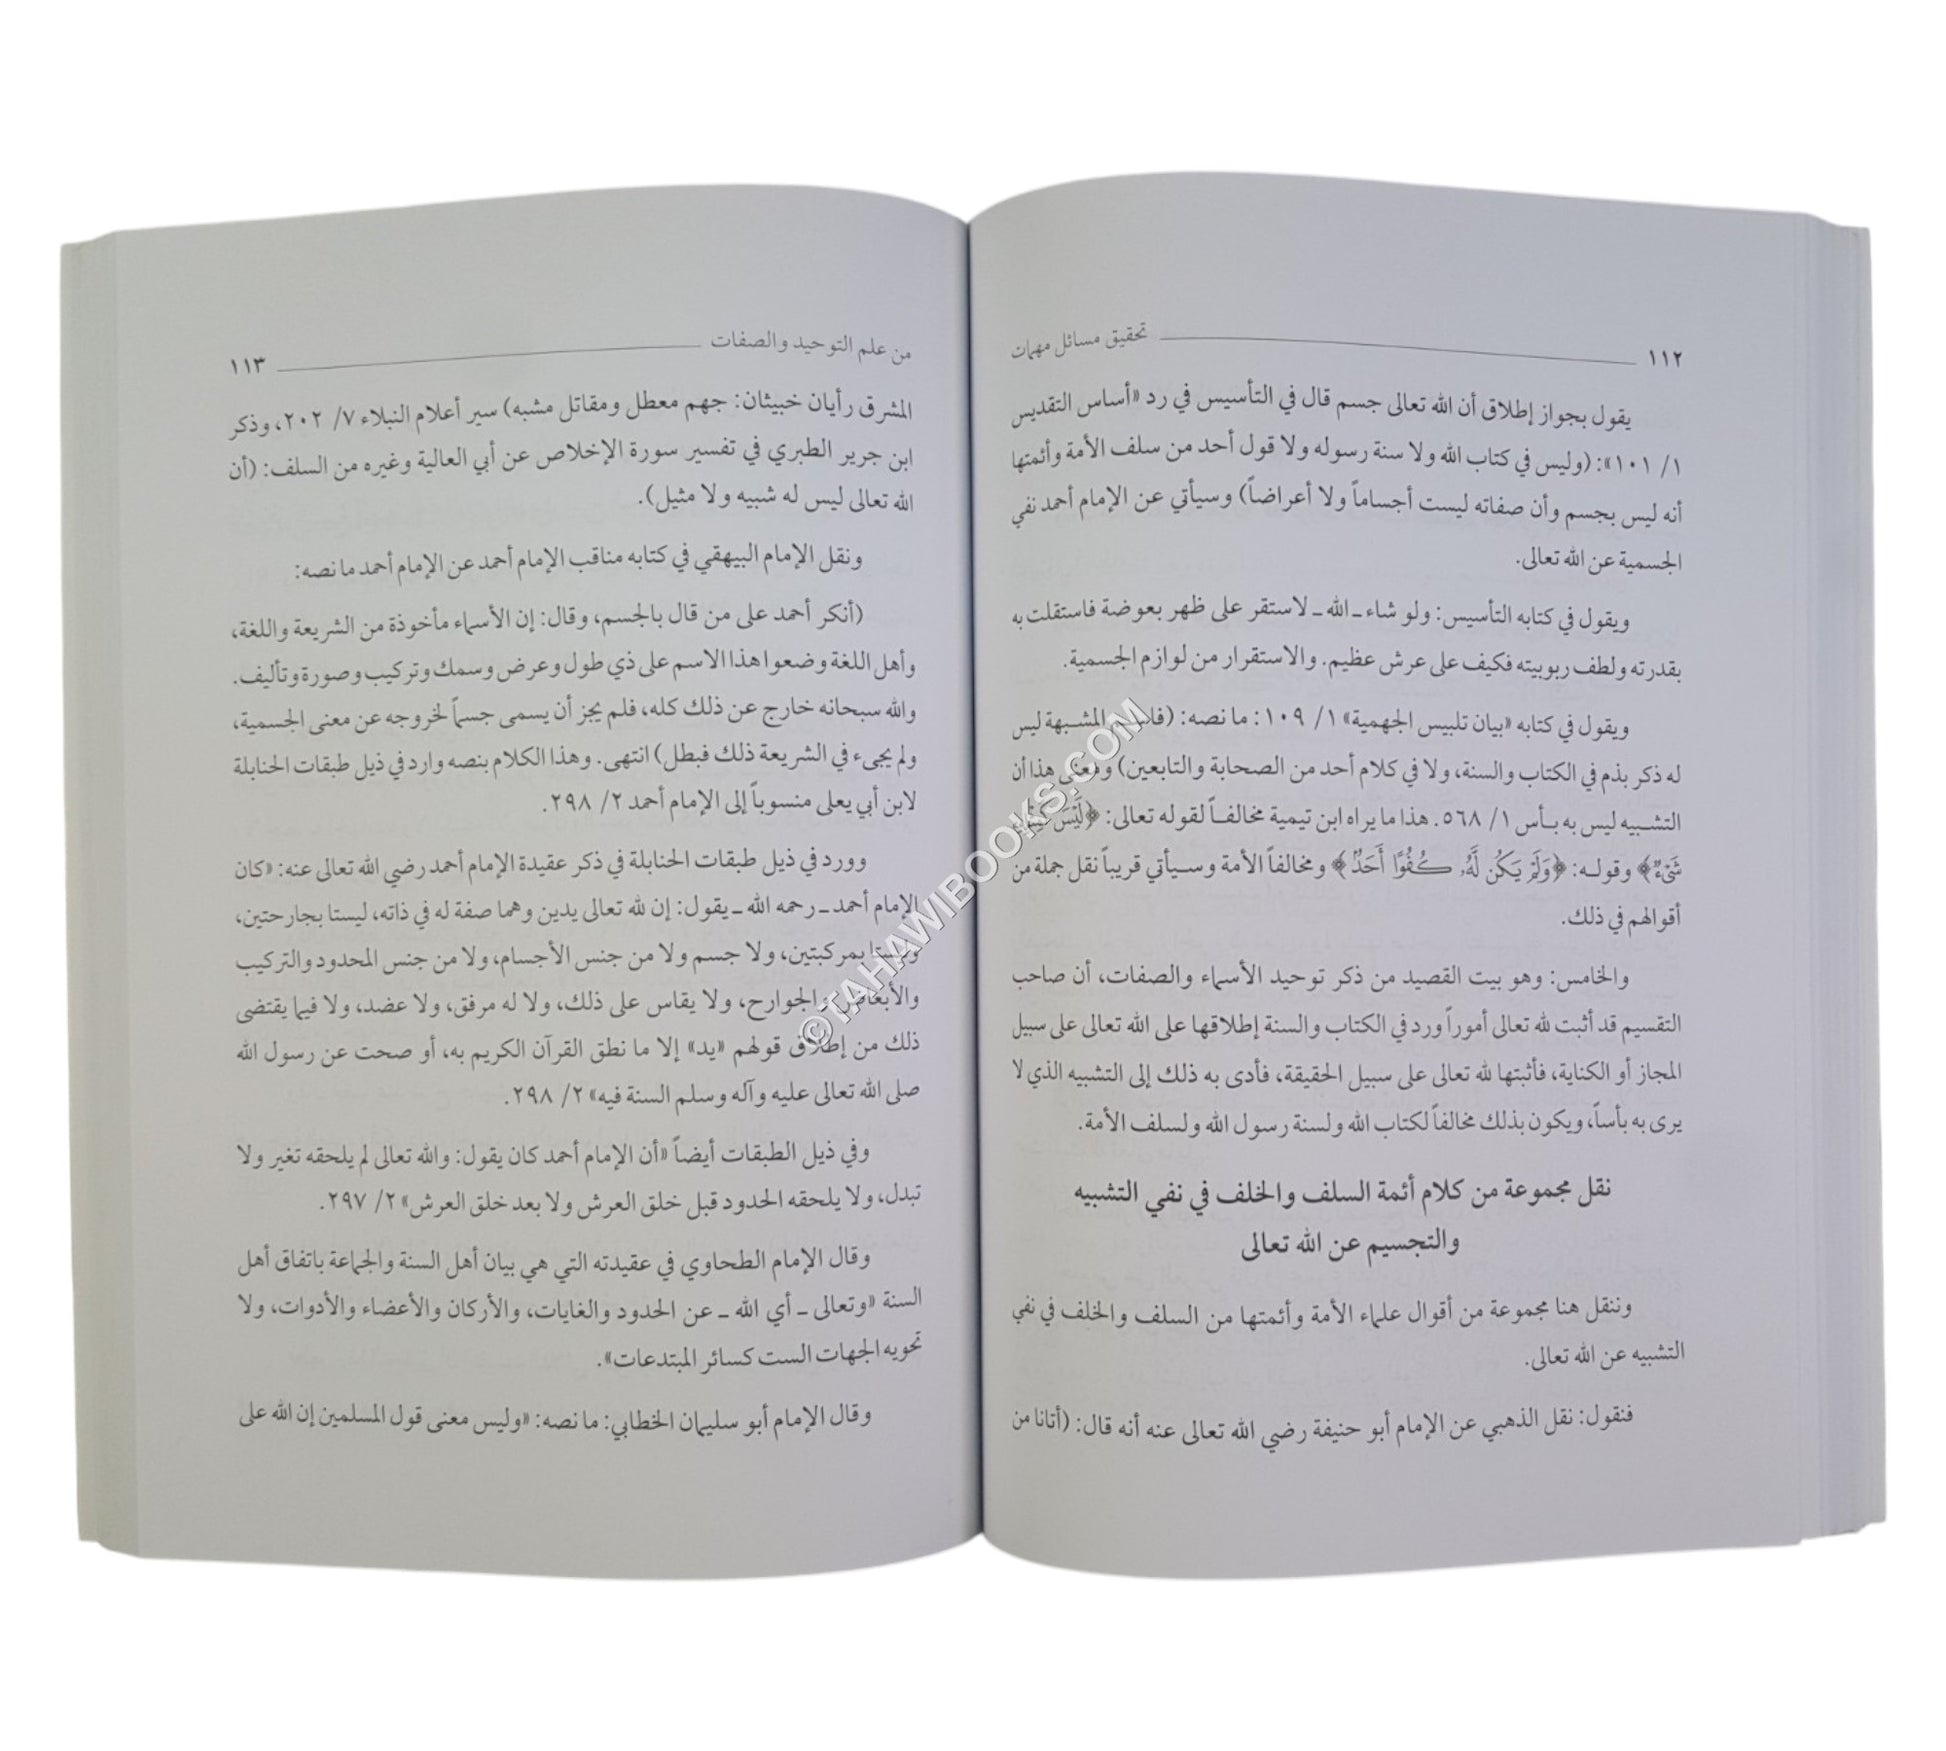 ١١٢ تحقيق مسائل مهمات
يقول بجواز إطلاق أن الله تعالى جسم قال في التأسيس في رد «أساس التقديس
١/ ١٠١»: (وليس في كتاب الله ولا سنة رسوله ولا قول أحد من سلف الأمة وأئمتها
أنه ليس بجسم وأن صفاته ليست أجساماً ولا أعراضاً) وسيأتي عن الإمام أحمد نفي
الجسمية عن الله تعالى.
ويقول في كتابه التأسيس: ولو شاء ـ الله ـ لاستقر على ظهر بعوضة فاستقلت به
بقدرته ولطف ربوبيته فكيف على عرش عظيم. والاستقرار من لوازم الجسمية.
ويقول في كتابه «بيان تلبيس الجهمية» ١/ ١٠٩: ما نصه: المشبهة ليس
له ذكر بذم في الكتاب والسنة، ولا في كلام أحد من الصحابة والتابعين) ومعنى هذا أن
التشبيه ليس به بأس ١/ ٥٦٨. هذا ما يراه ابن تيمية مخالفاً لقوله تعالى: ﴿لَيْسَ
شَيْءٌ﴾ وقوله: ﴿وَلَمْ يَكُن لَّهُۥ كُفُوًا أَحَدٌۢ﴾ ومخالفاً الأمة وسيأتي قريباً نقل جملة من
أقوالهم في ذلك.
والخامس: وهو بيت القصيد من ذكر توحيد الأسماء والصفات، أن صاحب
التقسيم قد أثبت لله تعالى أموراً ورد في الكتاب والسنة إطلاقها على الله تعالى على سبيل
المجاز أو الكناية، فأثبتها لله تعالى على سبيل الحقيقة، فأدى به ذلك إلى التشبيه الذي لا
يرى به بأساً، ويكون بذلك مخالفاً لكتاب الله ولسنة رسول الله ولسلف الأمة.
نقل مجموعة من كلام أئمة السلف والخلف في نفي التشبيه
والتجسيم عن الله تعالى
وننقل هنا مجموعة من أقوال علماء الأمة وأئمتها من السلف والخلف في نفي
التشبيه عن الله تعالى.
فنقول: نقل الذهبي عن الإمام أبو حنيفة رضي الله تعالى عنه أنه قال: (أتانا من
من علم التوحيد والصفات ١١٣
المشرق رأيان خبيثان: جهم معطل ومقاتل مشبه) سير أعلام النبلاء ٧/ ٢٠٢، وذكر
ابن جرير الطبري في تفسير سورة الإخلاص عن أبي العالية وغيره من السلف: (أن
الله تعالى ليس له شبيه ولا مثيل).
ونقل الإمام البيهقي في كتابه مناقب الإمام أحمد عن الإمام أحمد ما نصه:
(أنكر أحمد على من قال بالجسم، وقال: إن الأسماء مأخوذة من الشريعة واللغة،
وأهل اللغة وضعوا هذا الاسم على ذي طول وعرض وسمك وتركيب وصورة وتأليف.
والله سبحانه خارج عن ذلك كله، فلم يجز أن يسمى جسماً لخروجه عن معنى الجسمية،
ولم يجىء في الشريعة ذلك فبطل) انتهى. وهذا الكلام بنصه وارد في ذيل طبقات الحنابلة
لابن أبي يعلى منسوباً إلى الإمام أحمد ٢/ ٢٩٨.
وورد في ذيل طبقات الحنابلة في ذكر عقيدة الإمام أحمد رضي الله تعالى عنه: «كان
الإمام أحمد ـ رحمه الله ـ يقول: إن لله تعالى يدين وهما صفة له في ذاته، ليستا بجارحتين،
وليستا بمركبتين، ولا جسم ولا من جنس الأجسام، ولا من جنس المحدود والتركيب
والأبعاض والجوارح، ولا يقاس على ذلك، ولا له مرفق، ولا عضد، ولا فيما يقتضى
ذلك من إطلاق قولهم «يد» إلا ما نطق القرآن الكريم به، أو صحت عن رسول الله
صلى الله تعالى عليه وآله وسلم السنة فيه» ٢/ ٢٩٨.
وفي ذيل الطبقات أيضاً «أن الإمام أحمد كان يقول: والله تعالى لم يلحقه تغير ولا
تبدل، ولا يلحقه الحدود قبل خلق العرش ولا بعد خلق العرش» ٢/ ٢٩٧.
وقال الإمام الطحاوي في عقيدته التي هي بيان أهل السنة والجماعة باتفاق أهل
السنة «وتعالى ـ أي الله ـ عن الحدود والغايات، والأركان والأعضاء والأدوات، ولا
تحويه الجهات الست كسائر المبتدعات».
وقال الإمام أبو سليمان الخطابي: ما نصه: «وليس معنى قول المسلمين إن الله على
©TAHAWIBOOKS.COM